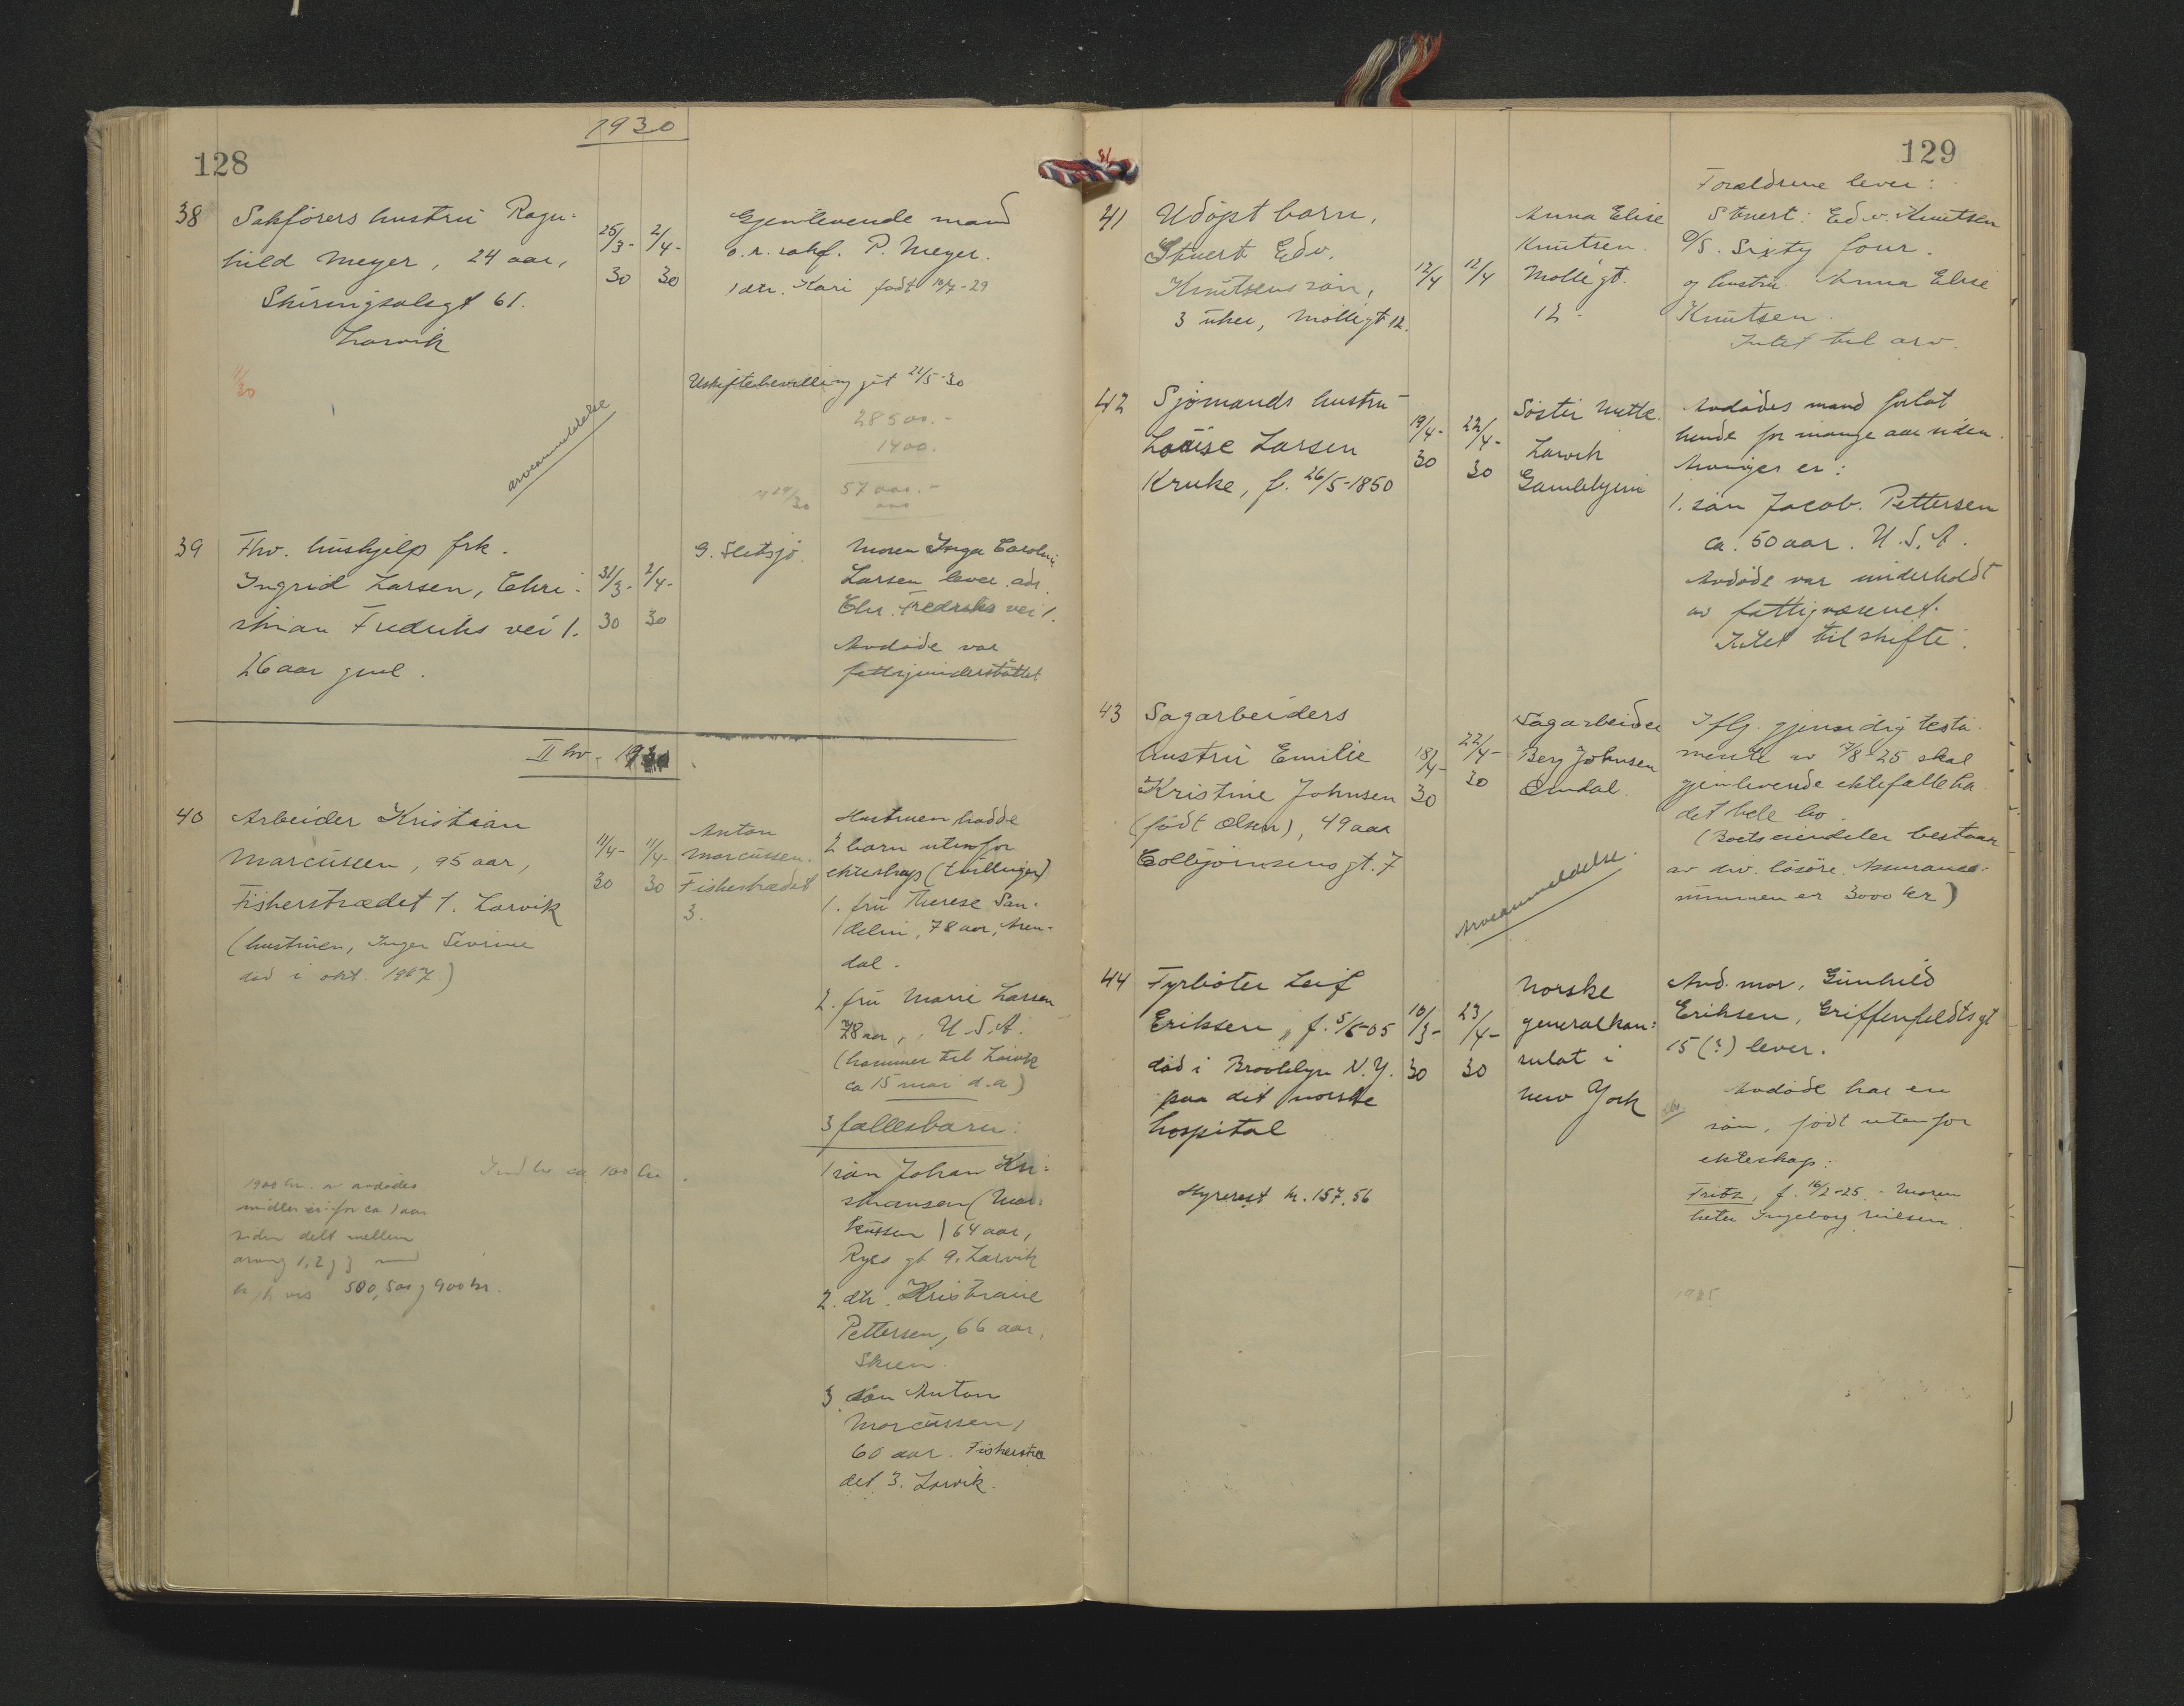 1930
128
38 Sakförers hustru Ragn-
hild Meyer, 24 aar,
Skiringsalsgt 61.
Larvik
25/3-30
2/4-30
Gjenlevende mand
o.r.sakf. P. Meyer.
1 dtr. Kari født 10/7-29
11/30
Uskiftebevilling git 21/5-30
28500.-
1400.
arveanmeldelse
39 Fhv. hushjelp frk.
Ingrid Larsen, Chri-
stian Fredriks vei 1.
26 aar gml.
31/3-30
2/4-30
G. Sletsjö.
Moren Inga Caroline
Larsen lever. adr.
Chr. Fredriks vei 1.
Avdöde var
fattigunderstöttet
II kv. 1930.
40 Arbeider Kristian
Marcussen, 95 aar,
Fiskerstrædet 1. Larvik
(hustruen, Inger Severine
död i okt. 1907.)
11/4-30
11/4-30
Anton
Marcussen.
Fiskestrædet
3.
Hustruen hadde
2 barn utenfor
ekteskap (tvillinger)
1. fru Therese San-
delin, 78 aar, Aren-
dal.
2. fru Marie Larsen
78 aar, U.S.A.
(kommer til Larvik
ca 15 mai d.a)
3 fællesbarn:
1 sön Johan Kri-
stiansen (Mar-
kussen) 64 aar,
Ryes gt 9. Larvik
2. dtr. Kristiane
Pettersen, 66 aar,
Skien.
3. sön Anton
Marcussen,
60 aar. Fiskerstræ
det 3. Larvik.
Indbo ca 100 kr.
1900 kr. av avdödes
midler er for ca 1 aar
siden delt mellem
arving 1, 2 og 3 med
500, 500 og 900 kr.
129
41 Udöpt barn,
Stuert Edv.
Knutsens sön,
3 uker, Mölligt 12.
12/4
12/4
Anna Elise
Knutsen.
Mölligt.
12-
Forældrene lever:
Stuert: Edv. Knutsen
D/S. Sixty four.
og hustru Anna Elise
Knutsen.
Intet til arv.
42 Sjömands hustru
Louise Larsen
Kruke, f. 26/5-1850
19/4-30
22/4-30
Söster Mette.
Larvik
Gamlehjem
Avdödes mand forlot
hende for mange aar siden.
Arvinger er:
1. sön Jacob. Pettersen
ca. 50 aar. U.S.A.
Avdöde var underholdt
av fattigvæsenet.
Intet til skifte.
43 Sagarbeiders
hustru Emilie
Kristine Johnsen
(födt Olsen), 49 aar
Colbjörnsens gt. 7
18/4-30
22/4-30
Sagarbeider
Berg Johnsen
Omdal.
Iflg. gjensidig testa-
mente av 7/8-25 skal
gjenlevende ektefælle ha
det hele bo.
(Boets eiendeler bestaar
av div. lösöre. Assurance-
summen er 3000 kr)
Arveanmeldelse.
44 Fyrböter Leif
Eriksen, f. 5/6-05
död i Brooklyn N.Y.
paa det norske
hospital
10/3-30
23/4-30
Norske
generalkon-
sulat i
New York
Avd. mor, Gunhild
Eriksen, Griffenfeldts gt
15 (?) lever.
Avdöde har en
sön, födt utenfor
ekteskap:
Fritz, f. 16/2-25. - Moren
heter Ingeborg Nilsen.
Hyrerest kr. 157,56
1925